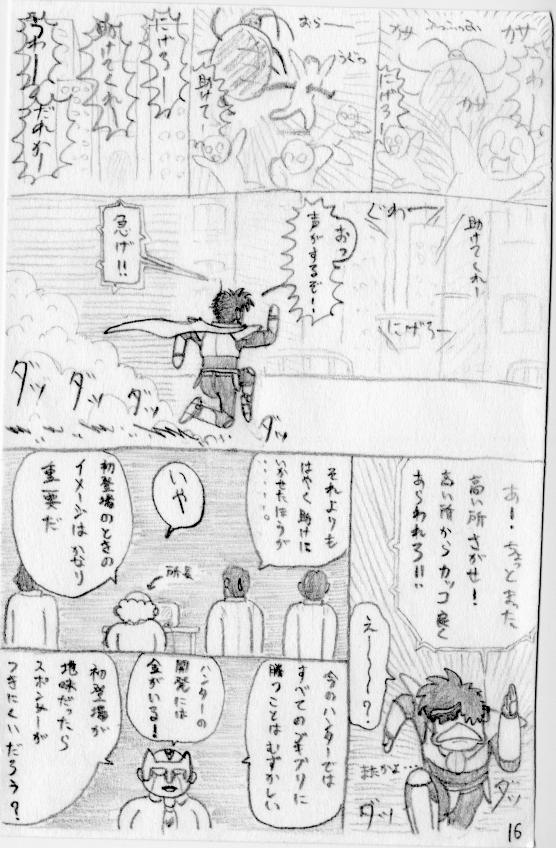 カサ
カサ
ふっふっふ
うわ
カサ
にげろー
おらー
うぐっ
助けてー
にげろー
助けてくれー
うわーん
だれかー
助けてくれー
ぐわー
にげろー
おっ
声がするぞ!
急げ!!
ダッ
ダッ
ダッ
ダッ
あー、ちょっとまった、
高い所さがせ!
高い所からカッコ良く
あらわれろ!!
えーーー?
またかよ…
ダッ
ダッ
それよりも
はやく助けに
いかせたほうが
いや
初登場のときの
イメージはかなり
重要だ
所長
今のハンターでは
すべてのゴキブリに
勝つことはむずかしい
ハンターの
開発には
金がいる!
初登場が
地味だったら
スポンサーが
つきにくいだろう?
16